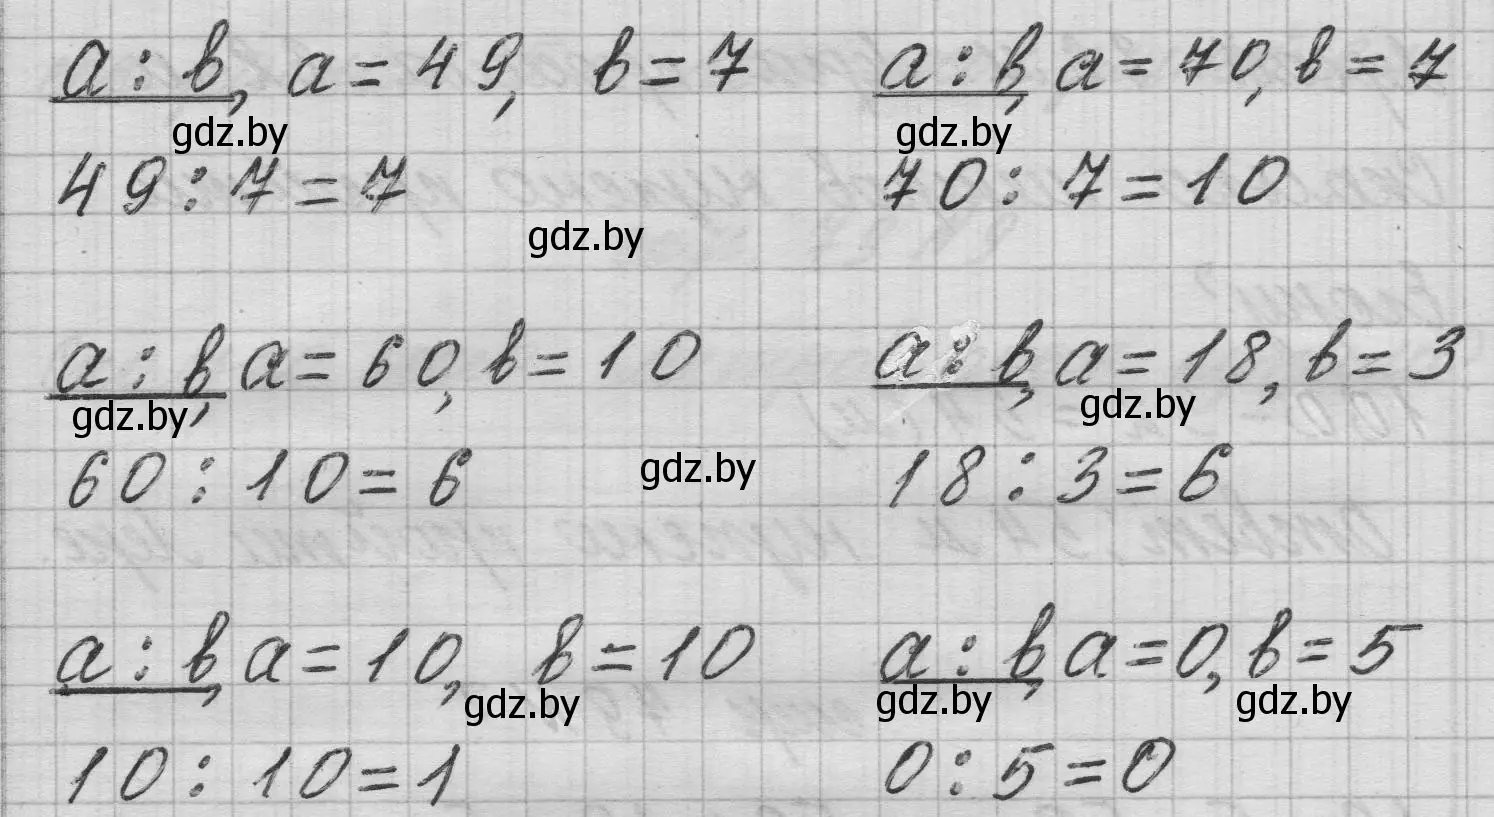 a : b, a = 49, b = 7
gdz.by
49 : 7 = 7
gdz.by
a : b, a = 70, b = 7
gdz.by
70 : 7 = 10
a : b, a = 60, b = 10
gdz.by
60 : 10 = 6
gdz.by
a : b, a = 18, b = 3
gdz.by
18 : 3 = 6
a : b, a = 10, b = 10
gdz.by
10 : 10 = 1
a : b, a = 0, b = 5
gdz.by gdz.by
0 : 5 = 0